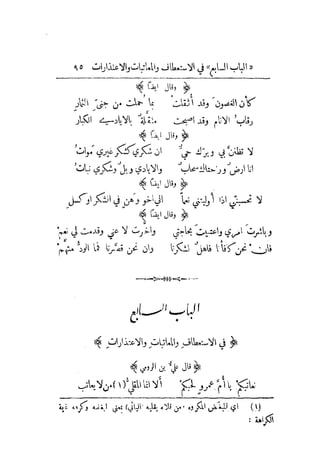 «الباب السابع» في الاستعطاف والمعاتبات والاعتذارات ٩٥
﴿ وقال ايضًا ﴾
كأن الغصون وقد أثقلت بما حملت من جنيّ الثمار
رقاب الانام وقد اصبحت مثقلة بالايادي الكبار
﴿ وقال ايضًا ﴾
لا تظنن بي وبرّك حيّ ان شكري كشكر غيري موات
انا ارض وراحتاك سحاب والايادي وبل وشكري نبات
﴿ وقال ايضًا ﴾
لا تحسبني اذا أوليتني نعمًا اني اخو وهن في الشكر او كسل
﴿ وقال ايضًا ﴾
وباشرت امري واعتنيت بحاجتي واخرت لا عني وقدمت لي نعم
فان نحن كافأنا فاهل لشكرنا وان نحن قصرنا فما الود متهم
الباب السابع
﴿ في الاستعطاف والمعاتبات والاعتذارات ﴾
﴿ قال علي بن الرومي ﴾
نعاتبكم يا أم عمرو لحبكم ألا انما المقلي (١) من لا يعاتب
(١) اي المبغض المكروه ‌من قلاه يقليه (اليائي) بمعنى ابغضه وكرهه غاية
الكراهة :